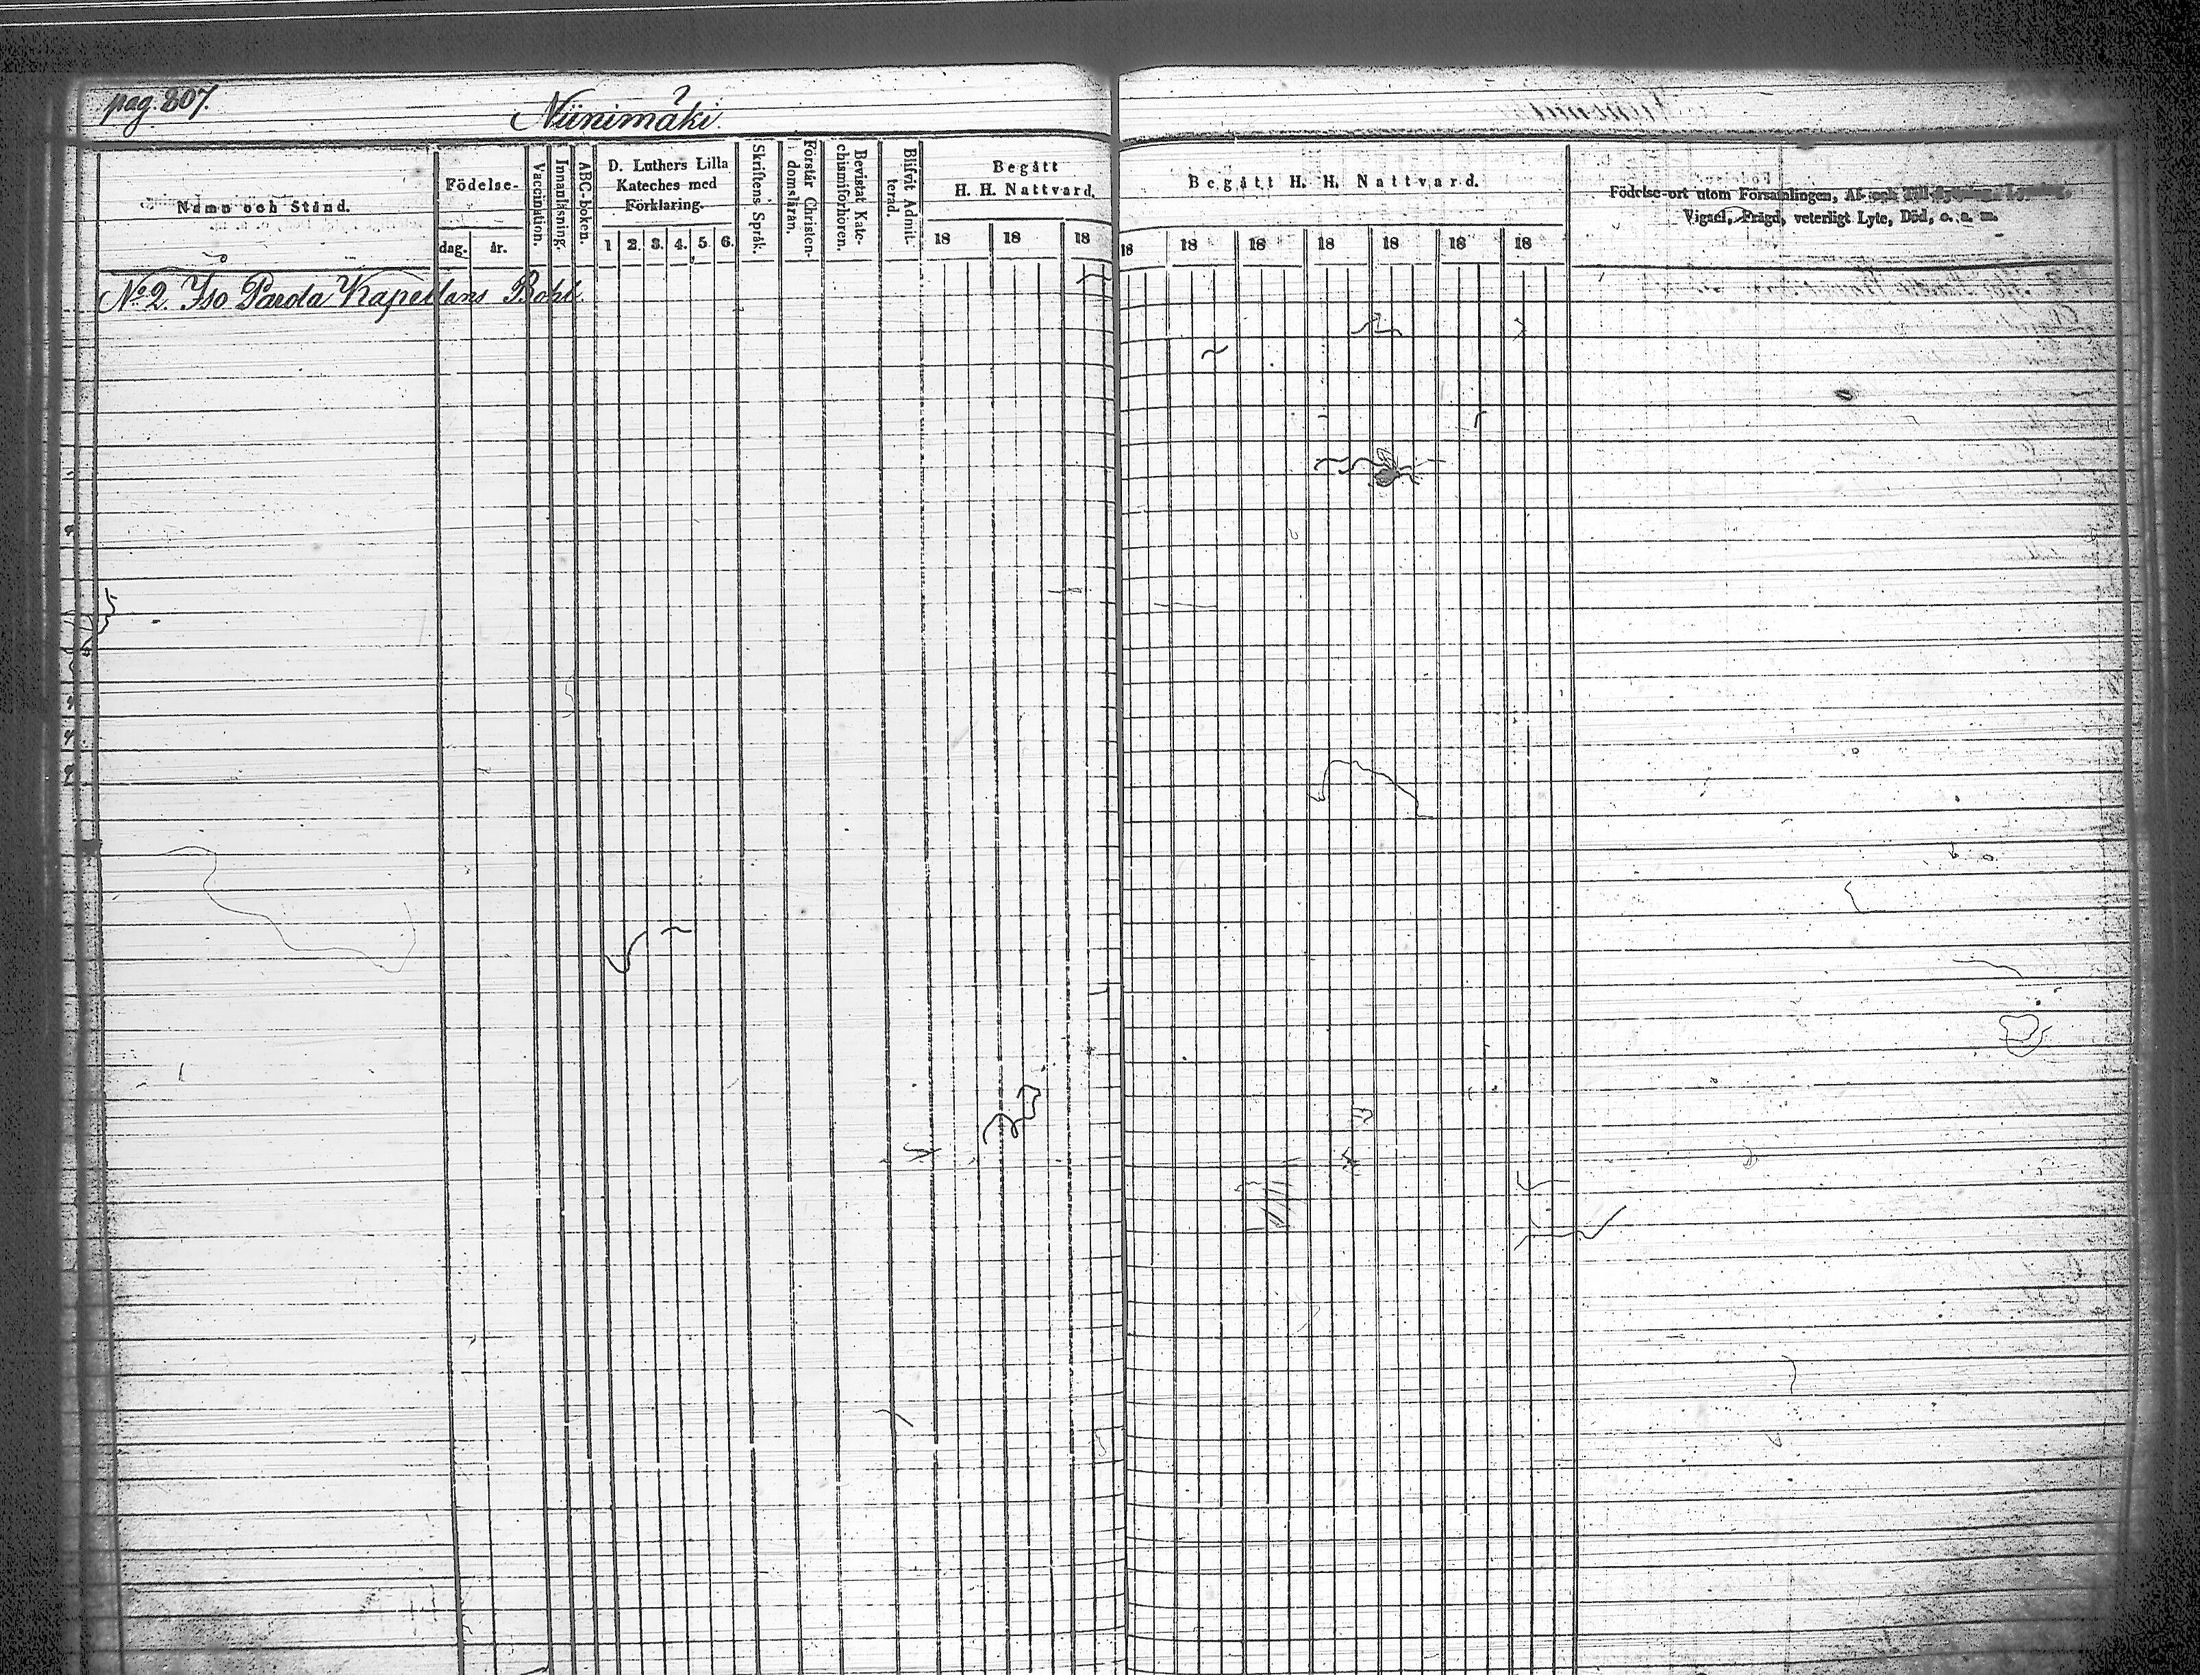 pag. 807.
Niinimäki.
Namn och Stånd.
Födelse-
dag.
år.
Vaccination.
Innanläsning.
ABC-boken.
D. Luthers Lilla
Kateches med
Förklaring.
1 2. 3. 4. 5. 6.
Skriftens Språk.
Förstår Christen-
domsläran.
Bevistat Kate-
chismiförhören.
Blifvit Admit-
terad.
Begått
H. H. Nattvard.
18 18 18
Begått H. H. Nattvard.
18 18 18 18 18 18 18
Födelse-ort utom Församlingen, Af- och
Vigsel, Frägd, veterligt Lyte, Död, o. s. m.
No 2. Iso Parola Kapellans Bohl.